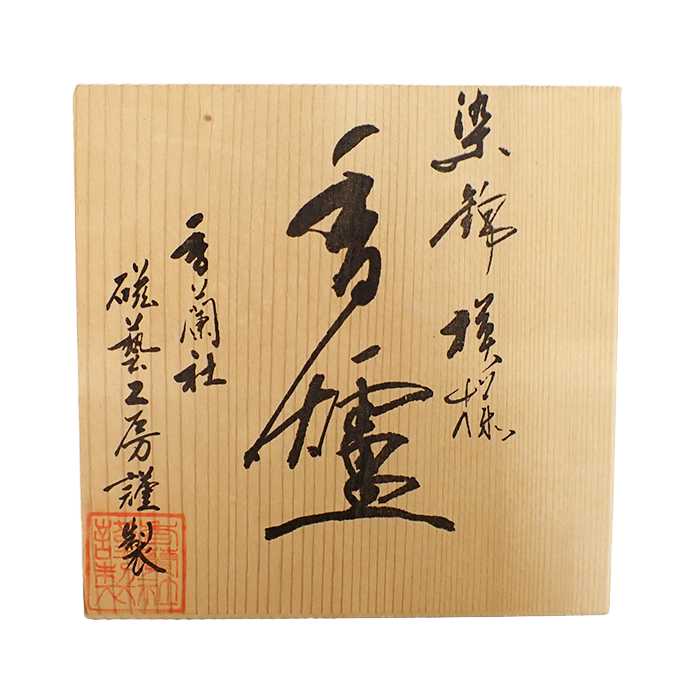 染錦模様
香爐
香蘭社
磁藝工房謹製